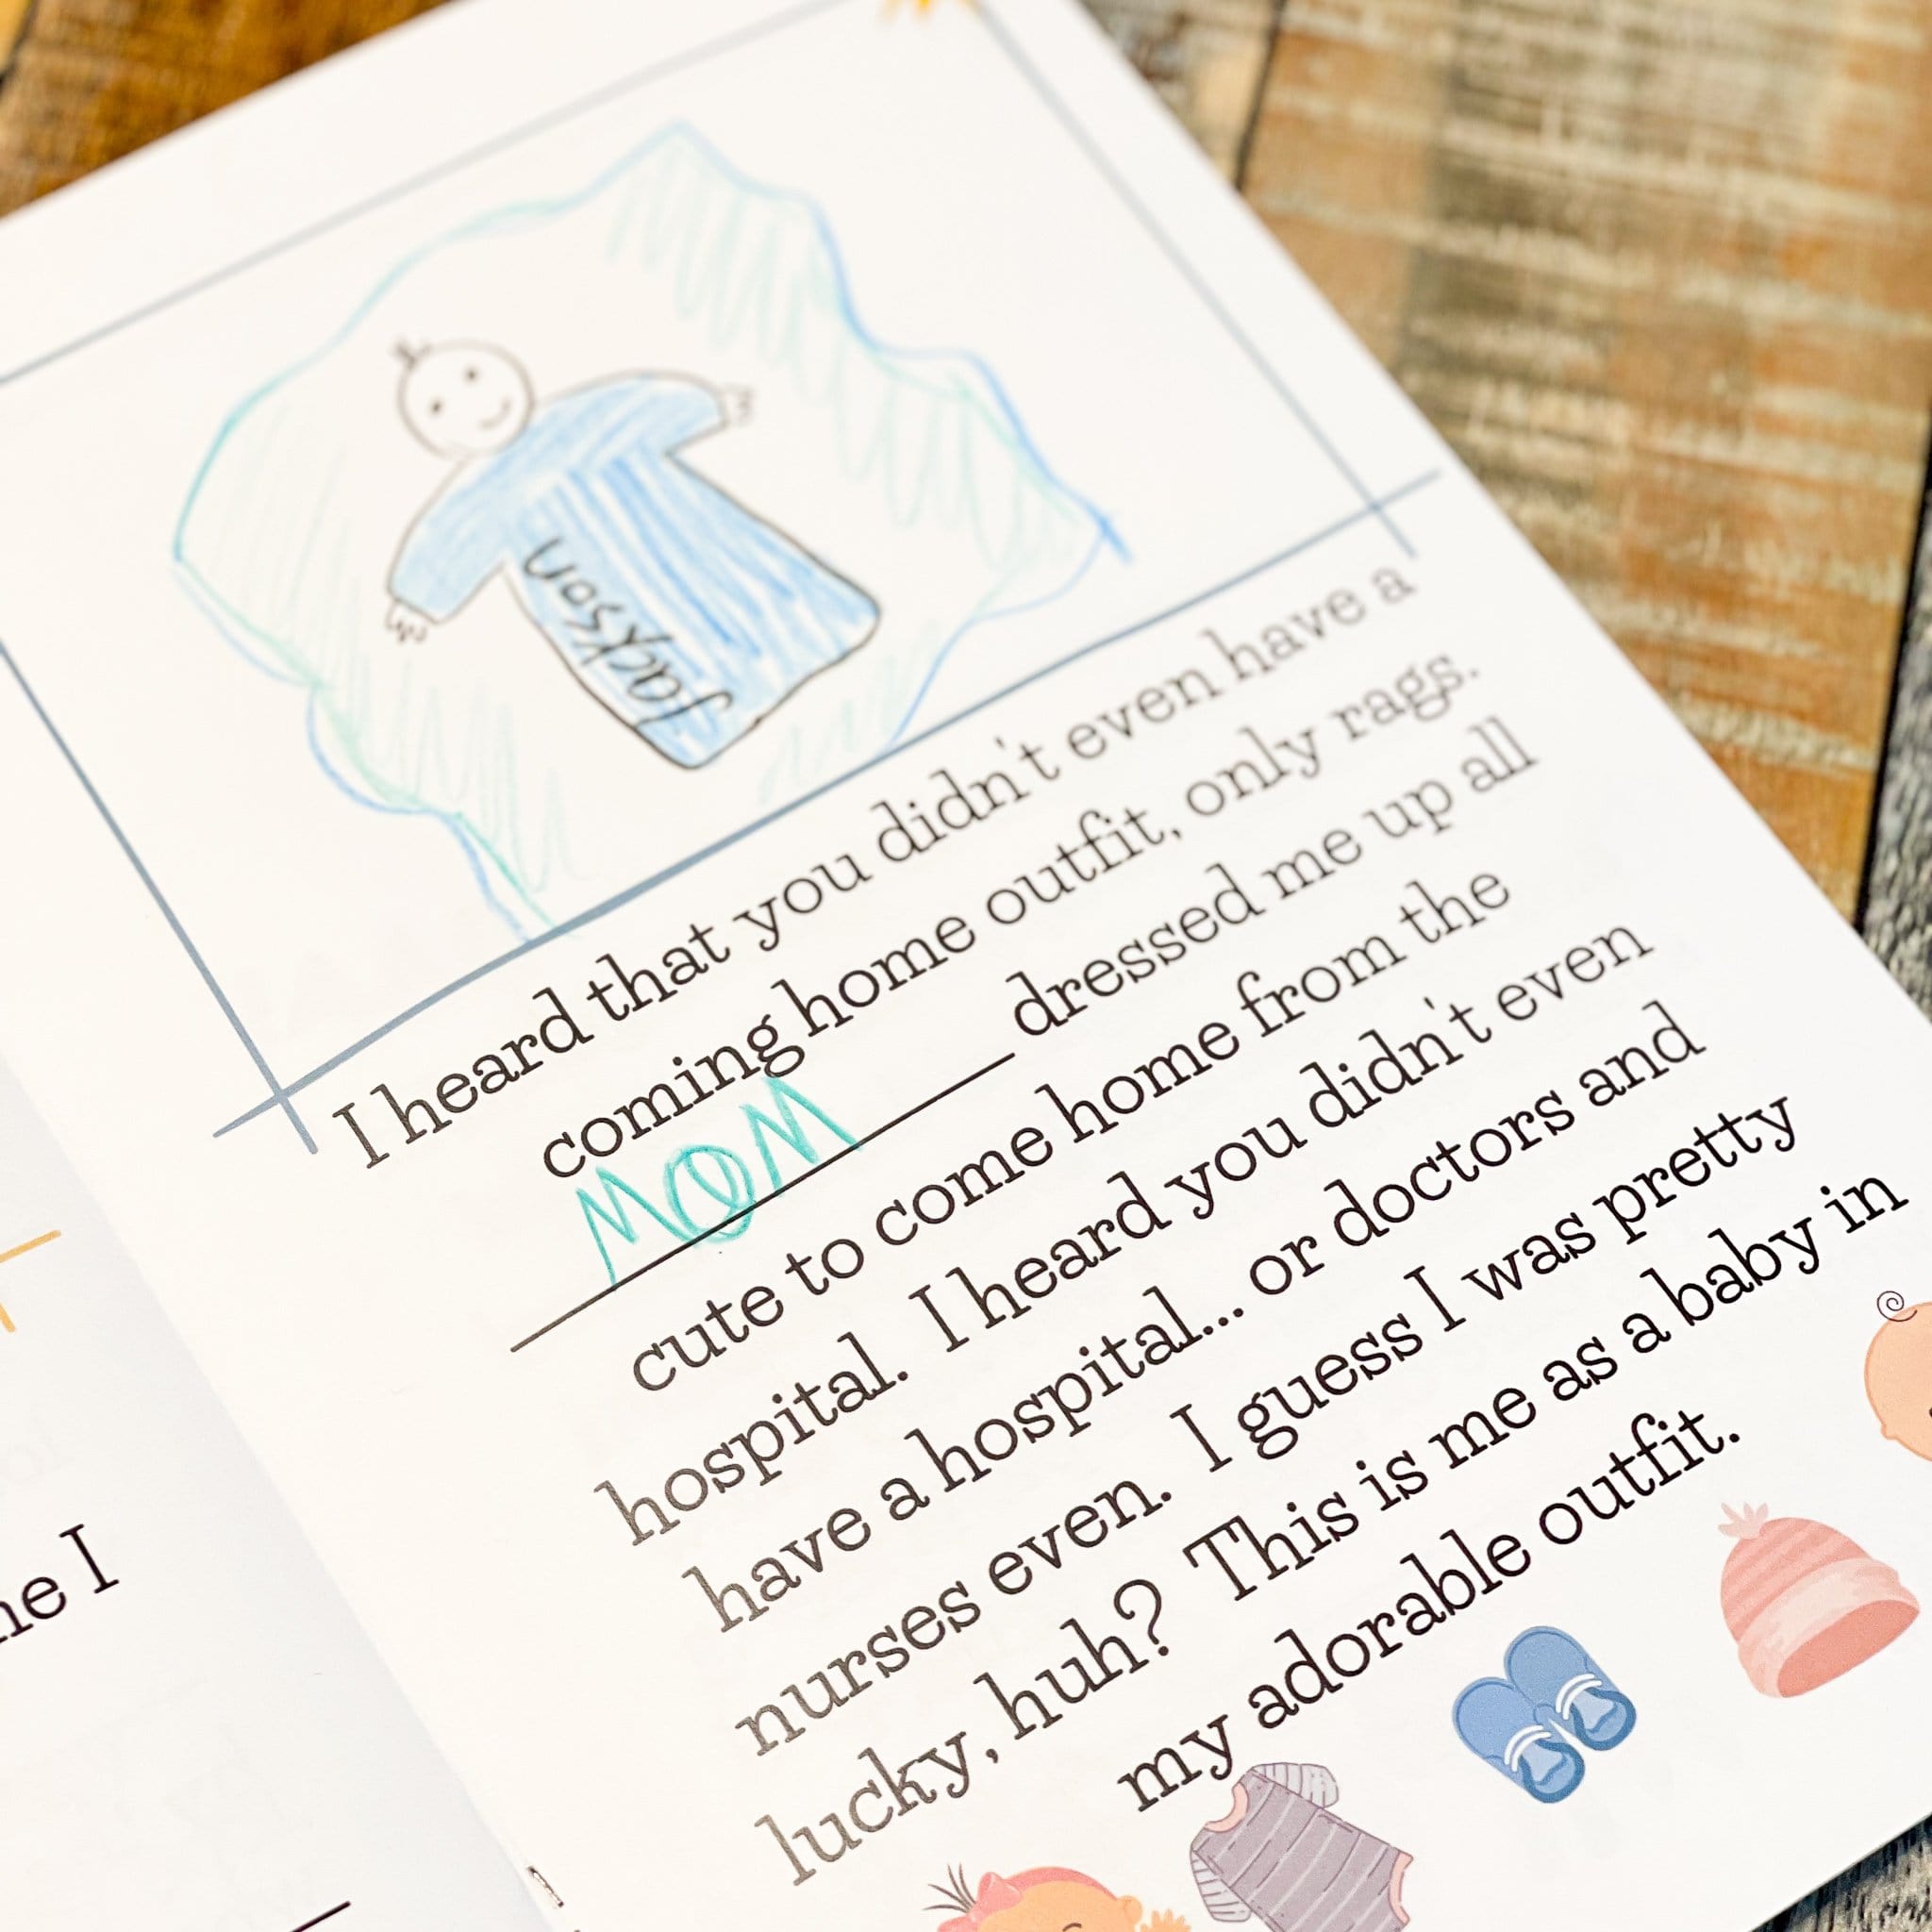 Jackson
I heard that you didn't even have a
coming home outfit, only rags.
MOM dressed me up all
cute to come home from the
hospital. I heard you didn't even
have a hospital... or doctors and
nurses even. I guess I was pretty
lucky, huh? This is me as a baby in
my adorable outfit.
I